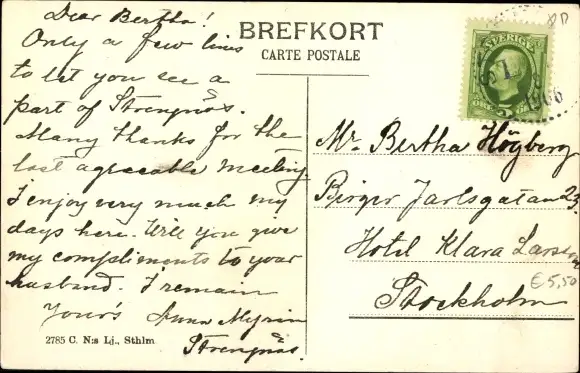 Dear Bertha!
Only a few lines
to let you see a
part of Strengnäs.
Many thanks for the
last agreeable meeting
I enjoy very much my
days here. Will you give
my compliments to your
husband. I remain
Your's Anna
Strengnäs.
2785 C. N:s Lj., Sthlm
BREFKORT
CARTE POSTALE
SVERIGE
1906
Mr Bertha Högberg
Birger Jarlsgatan 23
Hotel Klara Larson
€5,50
Stockholm